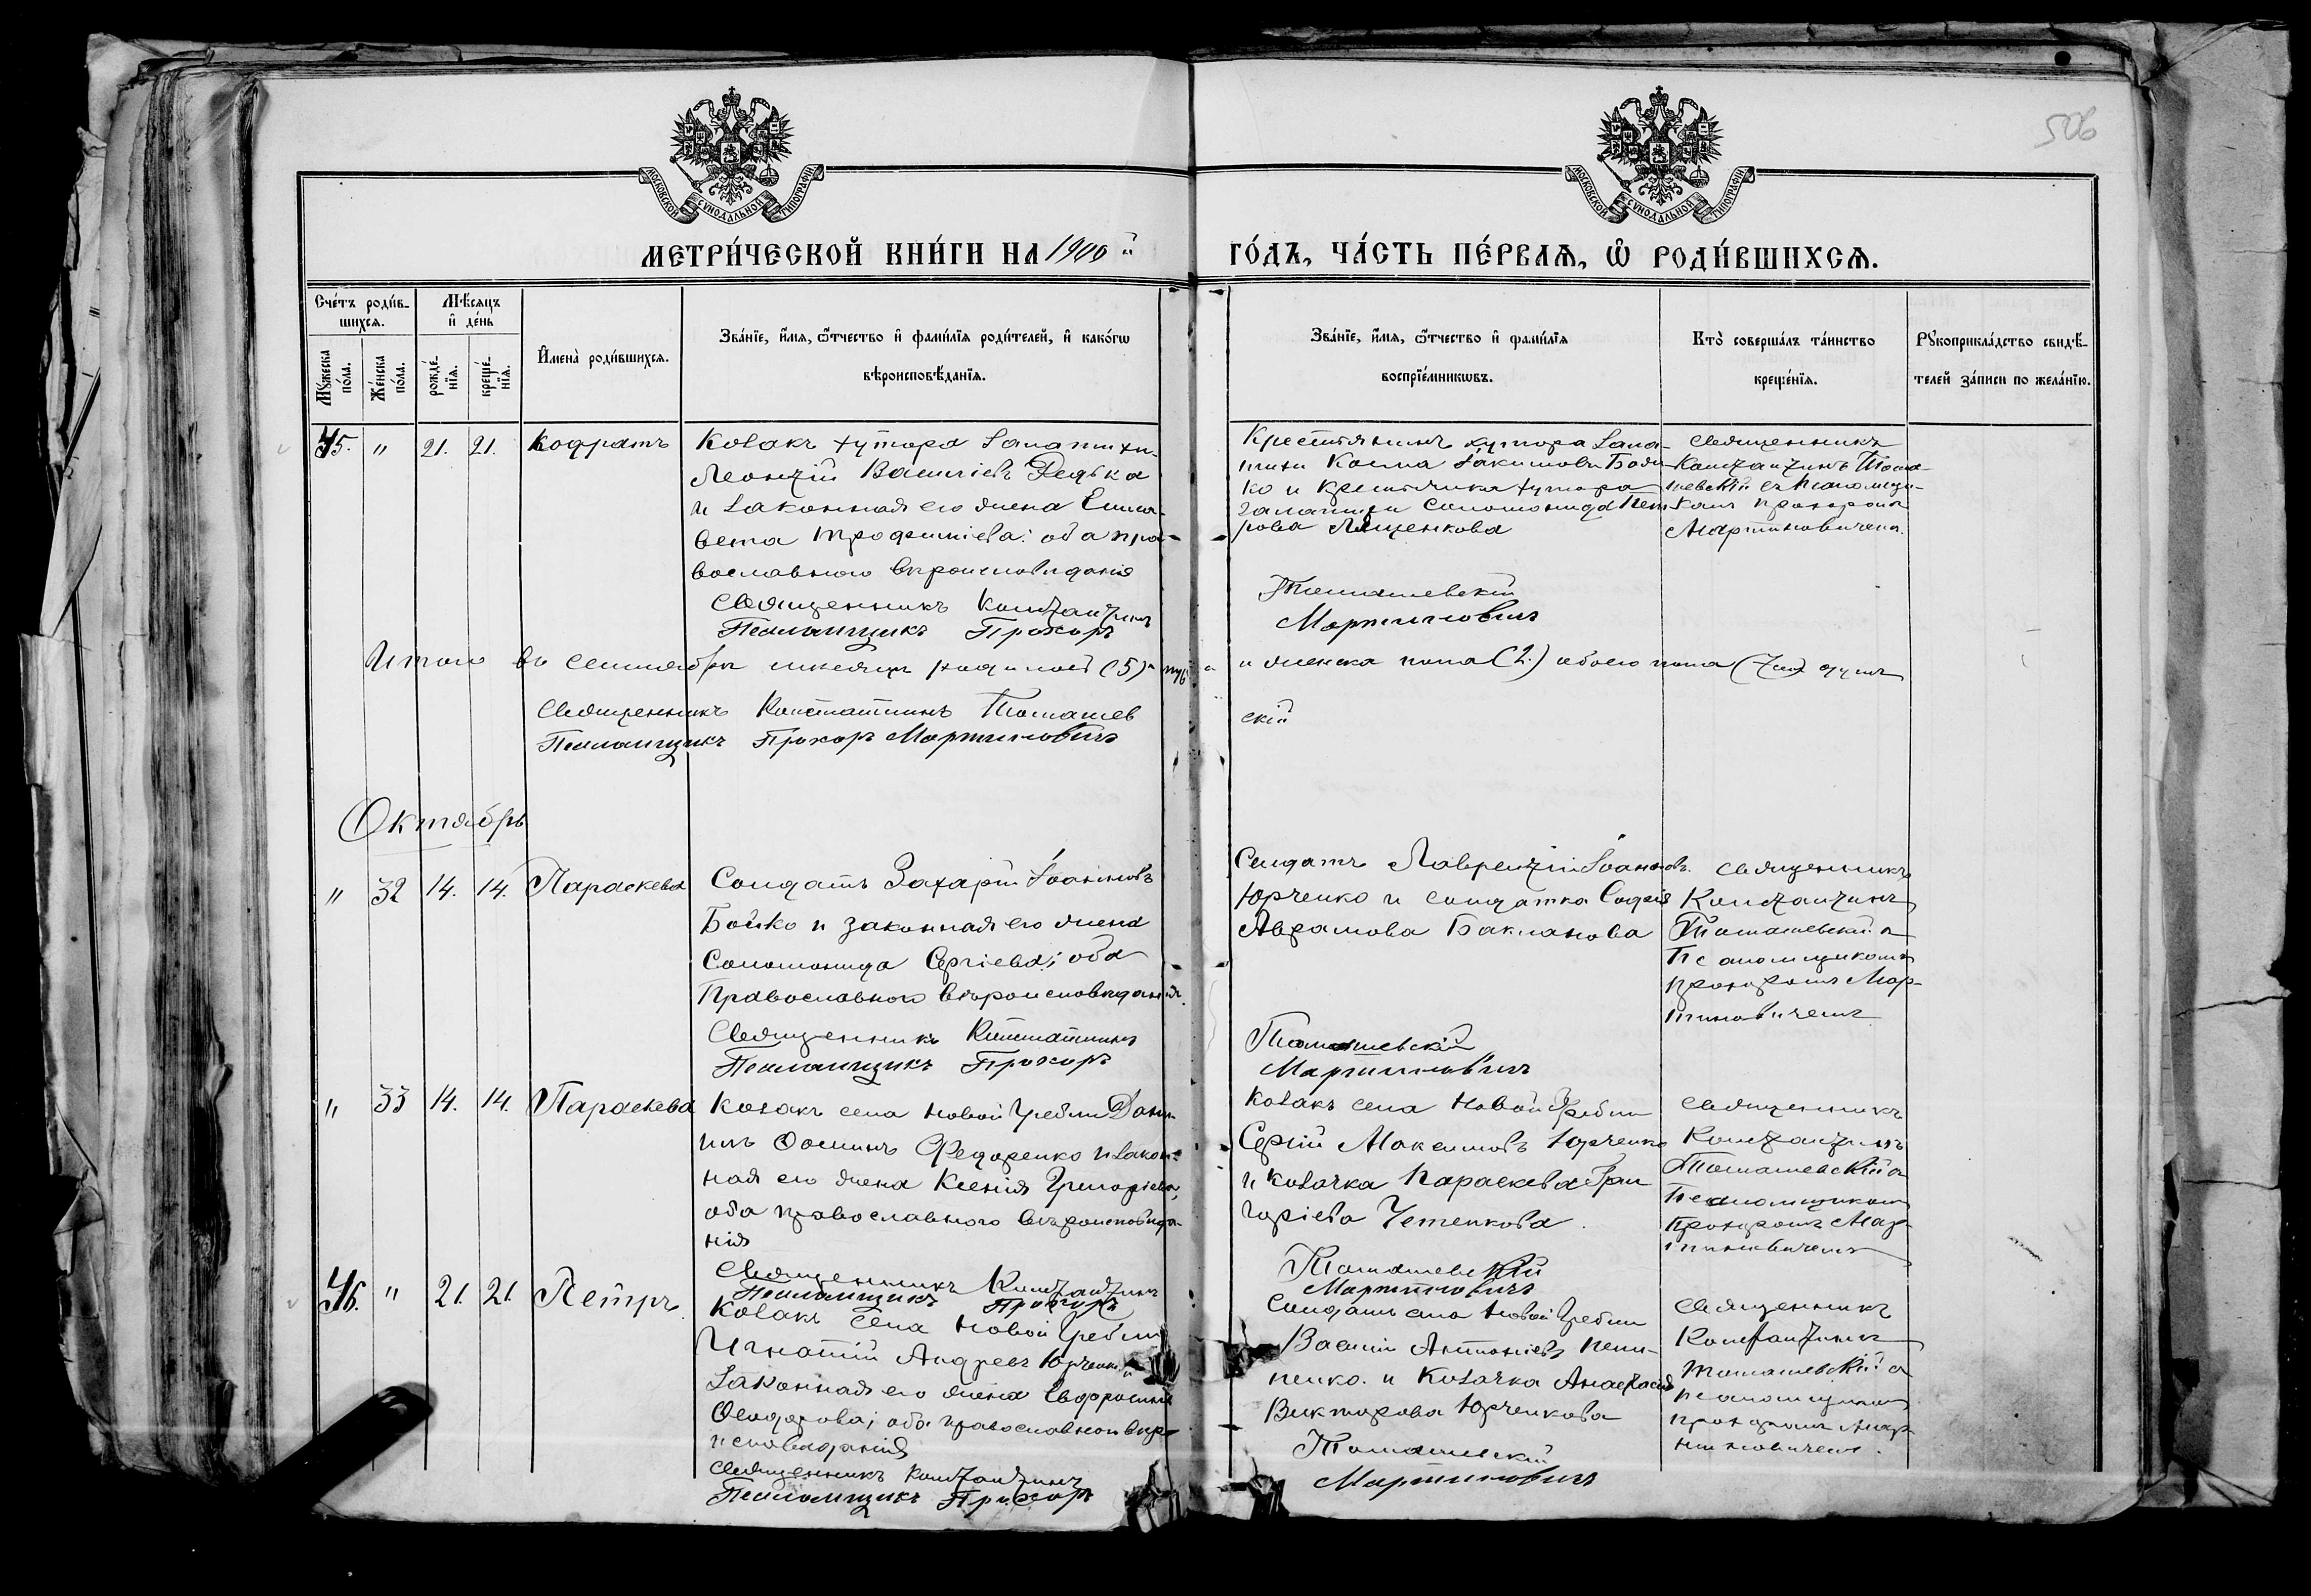 506
МОСКОВСКОЙ СѴНОДАЛЬНОЙ ТИПОГРАФІИ
МОСКОВСКОЙ СѴНОДАЛЬНОЙ ТИПОГРАФІИ
МЕТРИ́ЧЕСКОЙ КНИ́ГИ НА 1900 й
ГО́ДЪ, ЧА́СТЬ ПЕ́РВАѦ, Ѡ҆ РОДИ́ВШИХСѦ.
Сче́тъ роди́в-
шихсѧ.
Мѣ́сѧцъ
и҆ де́нь
Мꙋ́жеска
по́ла.
Же́нска
по́ла.
рожде́-
нїѧ.
креще́-
нїѧ.
И҆мена̀ роди́вшихсѧ.
Зва́нїе, и҆́мѧ, ѻ҆́тчество и҆ фами́лїѧ роди́телей, и҆ како́гѡ
вѣроисповѣ́данїѧ.
Зва́нїе, и҆́мѧ, ѻ҆́тчество и҆ фами́лїѧ
воспрїе́мникѡвъ.
Кто̀ соверша́лъ та́инство
креще́нїѧ.
Рꙋкоприкла́дство свидѣ́-
телей за́писи по жела́нїю.
45. " 21. 21. Кодратъ
Козакъ хутора
Леонтій Василіевъ Редька
и законная его жена Елиса-
вета Трофиміева; оба пра-
вославного вѣроисповѣданія
Священникъ Константинъ
Псаломщикъ Прохоръ
Крестьянинъ хутора
Косма Іакимовъ
ко и крестьянка хутора
Соломонида Пет-
рова Лященкова
Томашевскій
Мартиновичъ
Священникъ
Константинъ Тома-
шевскій съ псаломщи-
комъ Прохоромъ
Мартиновичемъ.
Итого въ сентябрѣ мѣсяцѣ родилось (5) муж
и женска пола (2.) обоего пола (7мь) душъ
Священникъ Константинъ Томашев
скій
Псаломщикъ Прохоръ Мартиновичъ
Октябрь
" 32 14. 14. Параскева
Солдатъ Захарій Іоанновъ
Бойко и законная его жена
Соломонида Сергіева; оба
Православного вѣроисповѣданія.
Священникъ Константинъ
Псаломщикъ Прохоръ
Солдатъ Лаврентій Іоанновъ
Юрченко и солдатка Софія
Аврамова Бакланова
Томашевскій
Мартиновичъ
Священникъ
Константинъ
Томашевскій съ
Псаломщикомъ
Прохоромъ Мар-
тиновичемъ
" 33 14. 14. Параскева
Козакъ села Новой Гребли Дани-
илъ Ѳоминъ Федоренко и закон-
ная его жена Ксенія Григоріева,
оба православного вѣроисповѣда-
нія
Священникъ Константинъ
Псаломщикъ Прохоръ
Козакъ села Новой Гребли
Сергій Максимовъ Юрченко
и козачка Параскева Гри
горіева
Томашевскій
Мартиновичъ
Священникъ
Константинъ
Томашевскій съ
Псаломщикомъ
Прохоромъ Мар-
тиновичемъ
46. " 21. 21. Петръ
Козакъ села Новой Гребли
Игнатій Андреевъ Юрченко и
законная его жена Евфросинія
Ѳеодорова; оба православного вѣро
исповѣданія
Священникъ Константинъ
Псаломщикъ Прохоръ
Солдатъ села Новой Гребли
Василій Антоніевъ
и Козачка Анастасія
Викторова Юрченкова
Томашевскій
Мартиновичъ
Священникъ
Константинъ
Томашевскій съ
псаломщикомъ
Прохоромъ Мар
тиновичемъ.